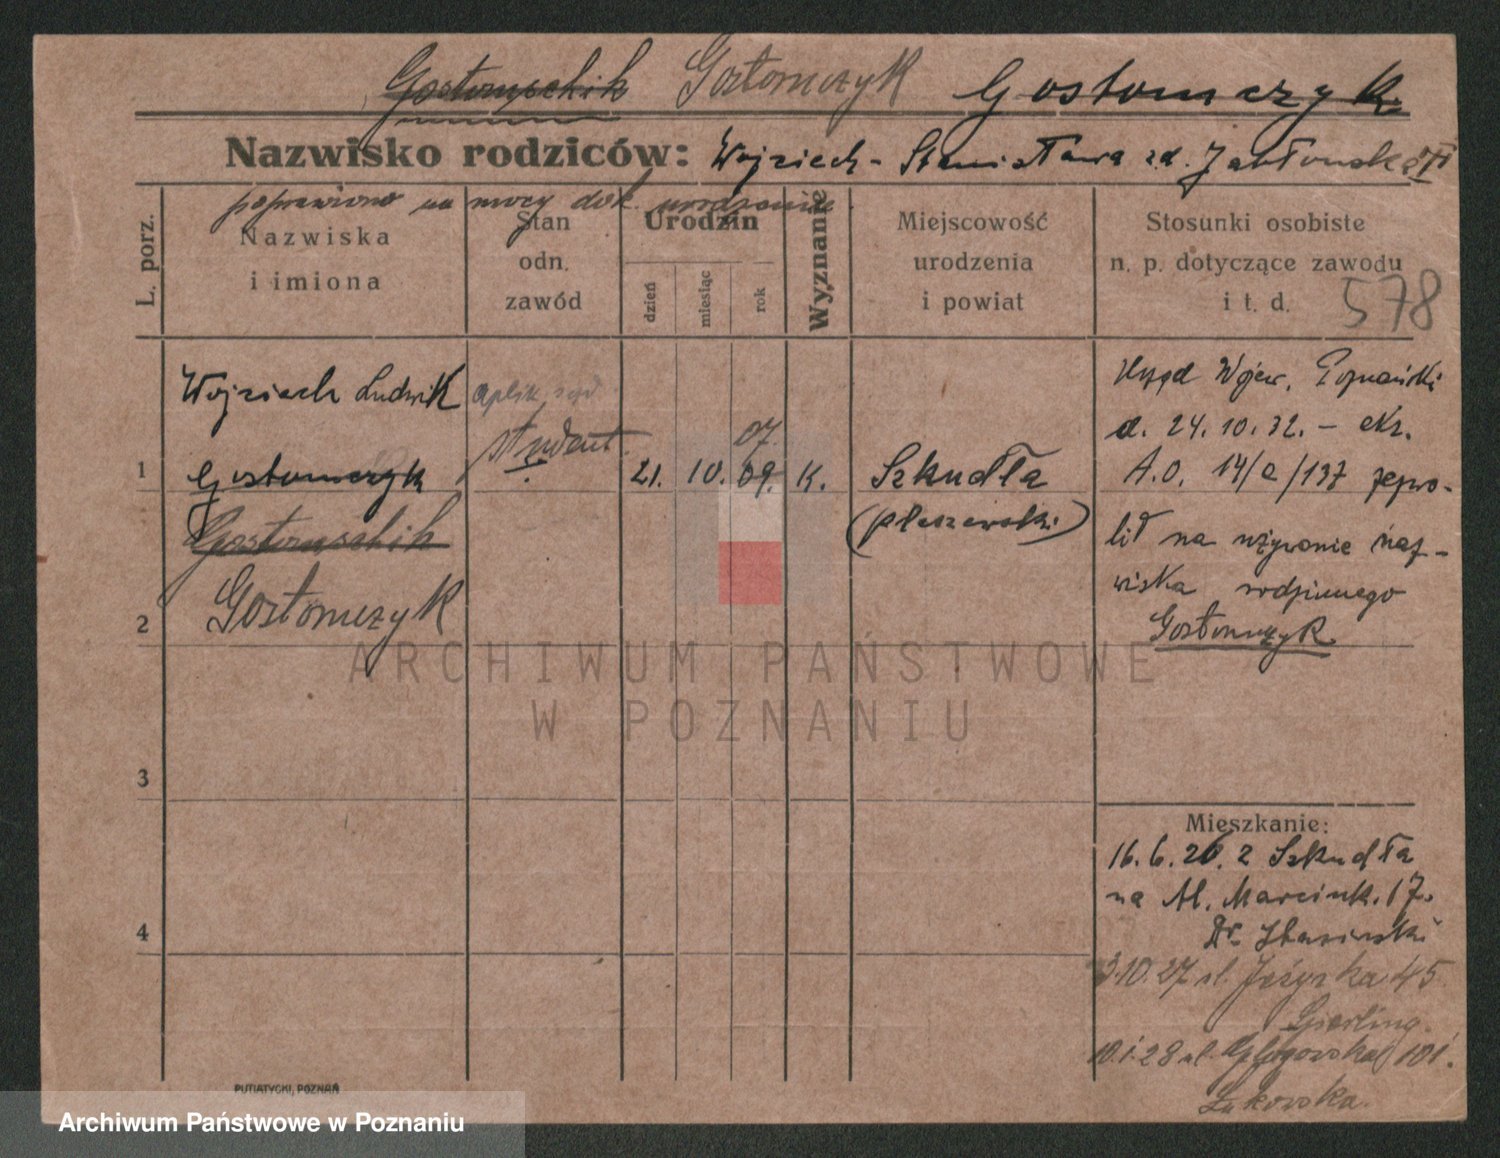 Gostomschik Gostomczyk Gostomczyk
Nazwisko rodziców: Wojziech - Stanisława zd. Jabłońska
poprawiono na mocy dok. urodzenia.
L. porz.
Nazwiska
i imiona
Stan
odn.
zawód
Urodzin
dzień
miesiąc
rok
Wyznanie
Miejscowość
urodzenia
i powiat
Stosunki osobiste
n. p. dotyczące zawodu
i t. d.
578
1
Wojziech Ludwik
Gostomczyk
Gostomschik
Gostomczyk
aplik. sąd
student.
21. 10. 09. 07. K.
Szkudła
(pleszewski)
Urząd Wojew. Poznański
d. 24.10.32. - cKr.
A.O. 14/a/137 zezwo-
lił na używanie naz-
wiska rodzinnego
Gostomczyk
2
3
4
Mieszkanie:
16.6.26. z Szkudła
na Al. Marcink. 17.
Dr.
3.10.27 ul. Jeżycka 45
Gierling.
10.1.28 ul. Głogowska 101.
Łukowska.
PUTIATYCKI, POZNAŃ
ARCHIWUM PAŃSTWOWE
W POZNANIU
Archiwum Państwowe w Poznaniu